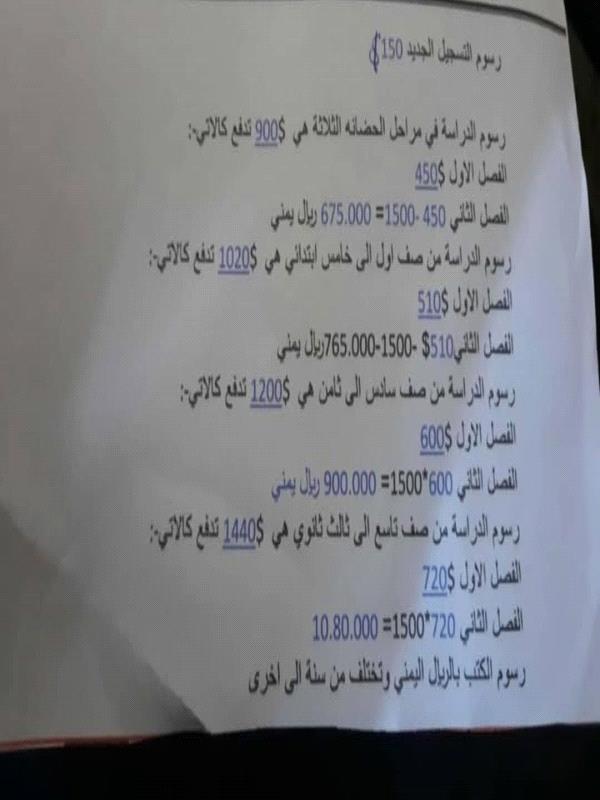 رسوم التسجيل الجديد 150$
رسوم الدراسة في مراحل الحضانه الثلاثة هي $900 تدفع كالاتي-:
الفصل الاول $450
الفصل الثاني 450 -1500= 675.000 ريال يمني
رسوم الدراسة من صف اول الى خامس ابتدائي هي $1020 تدفع كالاتي-:
الفصل الاول $510
الفصل الثاني510$ -1500-765.000ريال يمني
رسوم الدراسة من صف سادس الى ثامن هي $1200 تدفع كالاتي-:
الفصل الاول $600
الفصل الثاني 600*1500= 900.000 ريال يمني
رسوم الدراسة من صف تاسع الى ثالث ثانوي هي $1440 تدفع كالاتي-:
الفصل الاول $720
الفصل الثاني 720*1500= 10.80.000
رسوم الكتب بالريال اليمني وتختلف من سنة الى اخرى